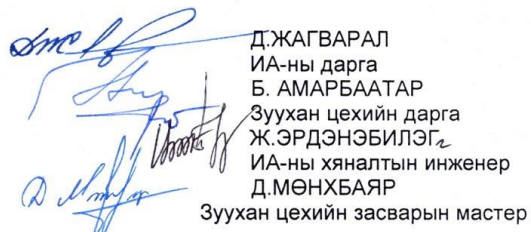 Д.ЖАГВАРАЛ
ИА-ны дарга
Б. АМАРБААТАР
Зуухан цехийн дарга
Ж.ЭРДЭНЭБИЛЭГ
ИА-ны хяналтын инженер
Д.МӨНХБАЯР
Зуухан цехийн засварын мастер